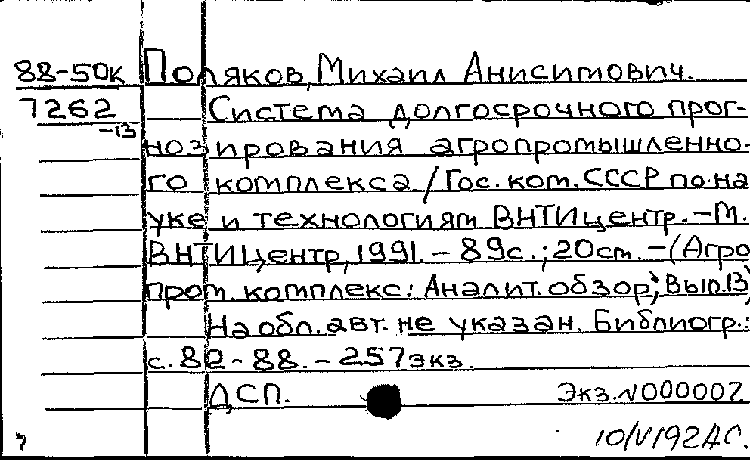 88-50к Поляков, Михаил Анисимович.
7262 Система долгосрочного прог-
-13
нозирования агропромышленно-
го комплекса / Гос. ком. СССР по на
уке и технологиям ВНТИцентр. – М.
ВНТИЦентр, 1991. – 89с.; 20см. – (Агро
пром. комплекс: Аналит. обзор; Вып. 13)
На обл. авт. не указан. Библиогр.:
с. 82-88. – 257экз.
ДСП. Экз. N000002
10/V192